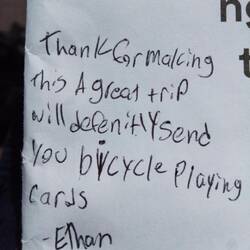 Thank for making
this A great trip
will defenitly send
you bycycle playing
cards
-Ethan